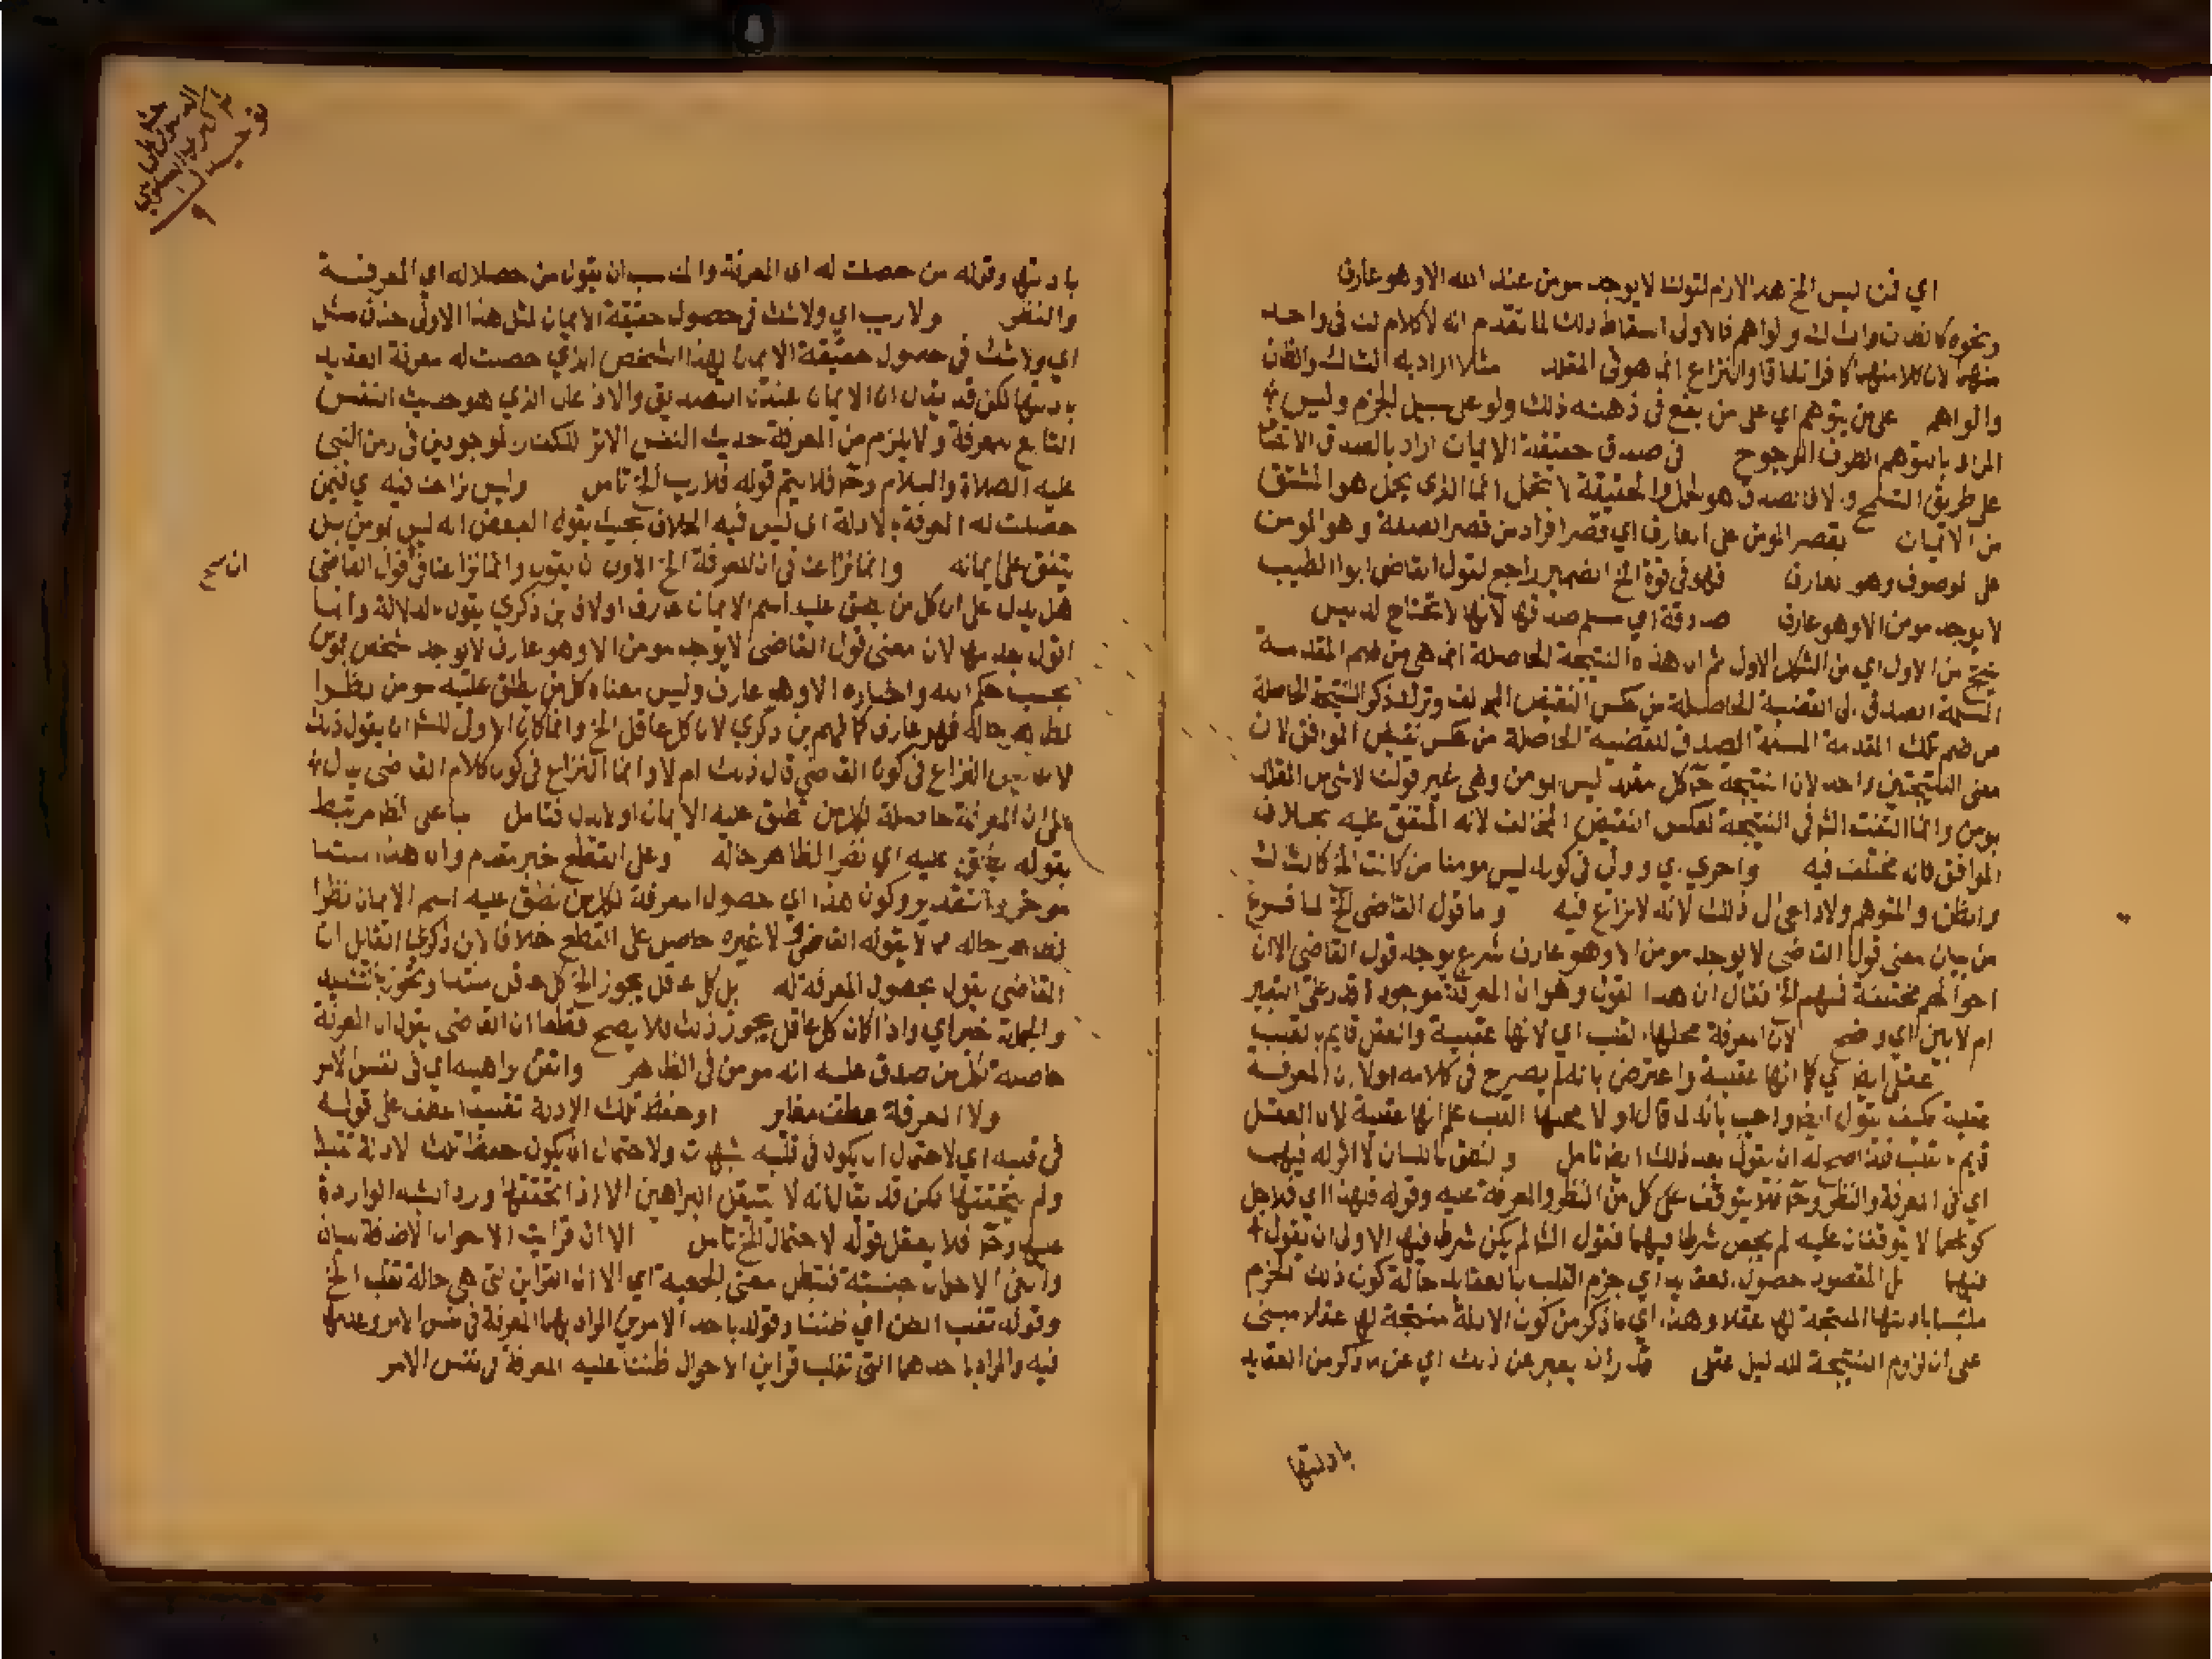 اي فمن ليس الخ هذا لازم لقولنا لا يوجد مومن عند الله الا وهو عارف
ونحوه كالظان والشاك والواهم فالاولى اسقاط ذلك لما تقدم انه لا كلام لنا في واحد
منهما لان كلا منهما كافر اتفاقا والنزاع انما هو في المقلد مثلا اراد به الشاك والظان
والواهم على من يتوهم اي على من يقع في ذهنه ذلك ولو على سبيل الجزم وليس
المراد بالتوهم الطرف المرجوح في صدق حقيقة الايمان اراد بالصدق الاتصا
على طريق التسمح ولان الصدق هو الحمل والحقيقة لا تحمل انما الذي يحمل هو المشتق
من الايمان بقصر المومن على العارف اي قصر افراد من قصر الصفة وهو المومن
على الموصوف وهو العارف فهو في قوة الخ الضمير راجع لقول القاضي ابو الطيب
لا يوجد مومن الا وهو عارف صادقة اي مسلم صدقها لانها لا تحتاج لدليس
ينتج من الاول اي من الشكل الاول ثم ان هذه النتيجة الحاصلة انما هي من ضم المقدمة
المسلمة الصدق الى القضية الحاصلة من عكس النقيض المخالف وترك ذكر النتيجة الحاصلة
من ضم تلك المقدمة المسلمة الصدق للقضية الحاصلة من عكس نقيض الموافق لان
معنى النتيجتين واحد لان النتيجة ح كل مقلد ليس بمومن وهي غير قولك لا شي من المقلد
بمومن وانما التفت الش في النتيجة لعكس النقيض المخالف لانه المتفق عليه بخلاف
الموافق فانه مختلف فيه واحرى اي واولى في كونه ليس مومنا من كانت الخ كالشاك
والظان والمتوهم ولا داعي ل ذلك لانه لا نزاع فيه وما قول القاضي الخ لما فرغ
من بيان معنى قول القاضي لا يوجد مومن الا وهو عارف شرع يوجه قول القاضي الا ان
احوالهم مختلفة فيهم الخ فقال ان هذا القول وهو ان المعرفة موجودة قدر على التعبير
ام لا بين اي واضح لان المعرفة محلها القلب اي لانها عقلية والعقل قايم بالقلب
عقلي ايضا اي كما انها عقلية واعترض بانه لم يصرح في كلامه اولا بان المعرفة
عقلية فكيف يقول ايضا واجيب بانه لما قال اولا محلها القلب علم انها عقلية لان العقل
قايم بالقلب فلذا صح له ان يقول بعد ذلك ايضا تامل والنطق باللسان لا اثر له فيهما
اي في المعرفة والنظر وح فلا يتوقف على كل من النظر والمعرفة عليه وقوله فلهذا اي فلاجل
كونهما لا يتوقفان عليه لم يجعل شرطا فيهما فقول الش لم يكن شرط فيها الاولى ان يقول
فيهما بل المقصود حصول العقايد اي جزم القلب بالعقايد حالة كون ذلك الجزم
ملتبسا بادلتها المنتجة لها عقلا وهذا اي ما ذكر من كون الادلة منتجة لها عقلا مبني
على ان لزوم النتيجة للدليل عقلي قدر ان يعبر عن ذلك اي عن ما ذكر من العقايد
بادلتها
بادلتها وقوله من حصلت له اي المعرفة والمناسب ان يقول من حصلا له اي المعرفة
والنظر ولا ريب اي ولا شك في حصول حقيقة الايمان لمثل هذا الاولى حذف مثل
اي ولا شك في حصول حقيقة الايمان لهذا الشخص الذي حصلت له معرفة العقايد
بادلتها لكن قد يقال ان الايمان عندنا التصديق والاذعان الذي هو حديث النفس
التابع للمعرفة ولا يلزم من المعرفة حديث النفس الا ترى للكفار الموجودين في زمن النبي
عليه الصلاة والسلام وح فلا يتم قوله فلا ريب الخ تامل وليس نزاعنا فيه اي فيمن
حصلت له المعرفة بالادلة اي ليس فيه الخلاف بحيث يقول البعض انه ليس بمومن بل
يتفق على ايمانه وانما نزاعنا في ان المعرفة الخ الاولى ان يقول وانما نزاعنا في قول القاضي
هل يدل على ان كل من يصدق عليه اسم الايمان عارف اولا فابن ذكري يقول بالدلالة وانا
اقول بعدمها لان معنى قول القاضي لا يوجد مومن الا وهو عارف لا يوجد شخص مومن
بحسب حكم الله واخباره الا وهو عارف وليس معناه كل من يطلق عليه مومن نظرا
لظاهر حاله فهو عارف كما فهم ابن ذكري لان كل عاقل الخ وانما كان الاولى للش ان يقول ذلك
لانه ليس النزاع في كون القاضي قال ذلك ام لا وانما النزاع في كون كلام القاضي يدل
على ان المعرفة حاصلة لكل من يطلق عليه الايمان اولا يدل فتامل بناء على الظاهر مرتبط
بقوله يطلق عليه اي نظرا لظاهر حاله وعلى القطع خبر مقدم وان هذا مبتدا
موخر والتقدير وكون هذا اي حصول المعرفة لكل من يطلق عليه اسم الايمان نظرا
لظاهر حاله مما لا يقوله القاضي ولا غيره حاصل على القطع خلافا لابن ذكري القايل ان
القاضي يقول بحصول المعرفة له بل كل عاقل يجوز الخ كل عاقل مبتدا ويجوز بالتشديد
والجملة خبر اي واذا كان كل عاقل يجوز ذلك فلا يصح قطعا ان القاضي يقول ان المعرفة
حاصلة لكل من صدق عليه انه مومن في الظاهر واتقن براهينه اي في نفس الامر
ولا المعرفة عطف مغاير او حفظ تلك الادلة تقليدا عطف على قوله
في قلبه اي لاحتمال ان يكون في قلبه شبهات ولاحتمال ان يكون حفظ تلك الادلة تقليدا
ولم يحققها لكن قد يقال انه لا يتيقن البراهين الا اذا حققها ورد الشبه الواردة
عليها وح فلا يعقل قوله لاحتمال الخ تامل الا ان قراين الاحوال الاضافة للبيان
وال في الاحوال جنسية فتبطل معنى الجمعية اي الا ان القراين التي هي حالة تغلب الخ
وقوله تغلب الظن اي ظننا وقوله باحد الامرين المراد بهما المعرفة في نفس الامر وعدمها
فيه والمراد باحدهما التي تغلب قراين الاحوال ظننا عليه المعرفة في نفس الامر